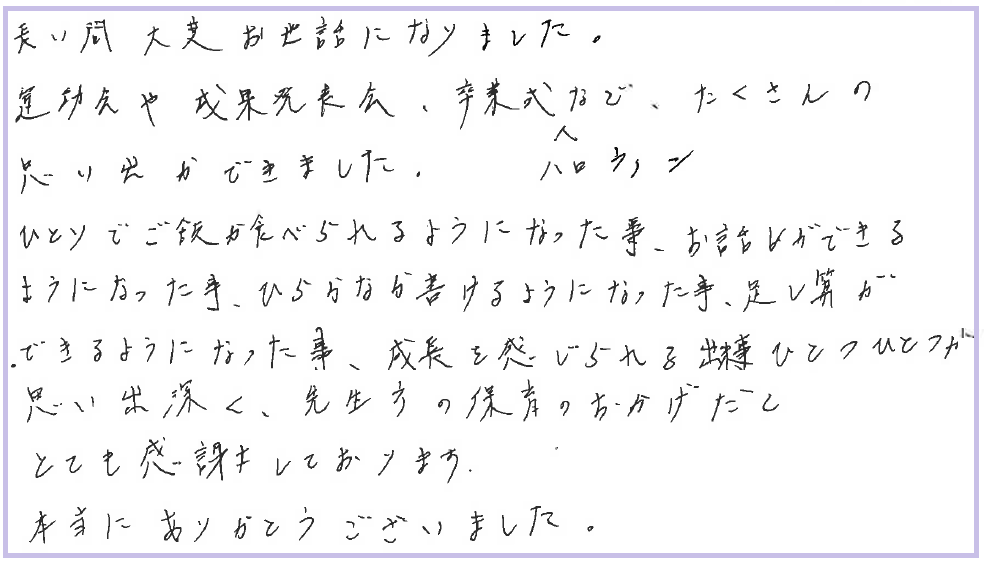 長い間 大変お世話になりました。
運動会や成果発表会、卒業式など、たくさんの
ハロウィン
思い出ができました。
ひとりでご飯が食べられるようになった事、お話しができる
ようになった事、ひらがなが書けるようになった事、足し算が
できるようになった事、成長を感じられる出来事ひとつひとつが
思い出深く、先生方の保育のおかげだと
とても感謝しております。
本当にありがとうございました。